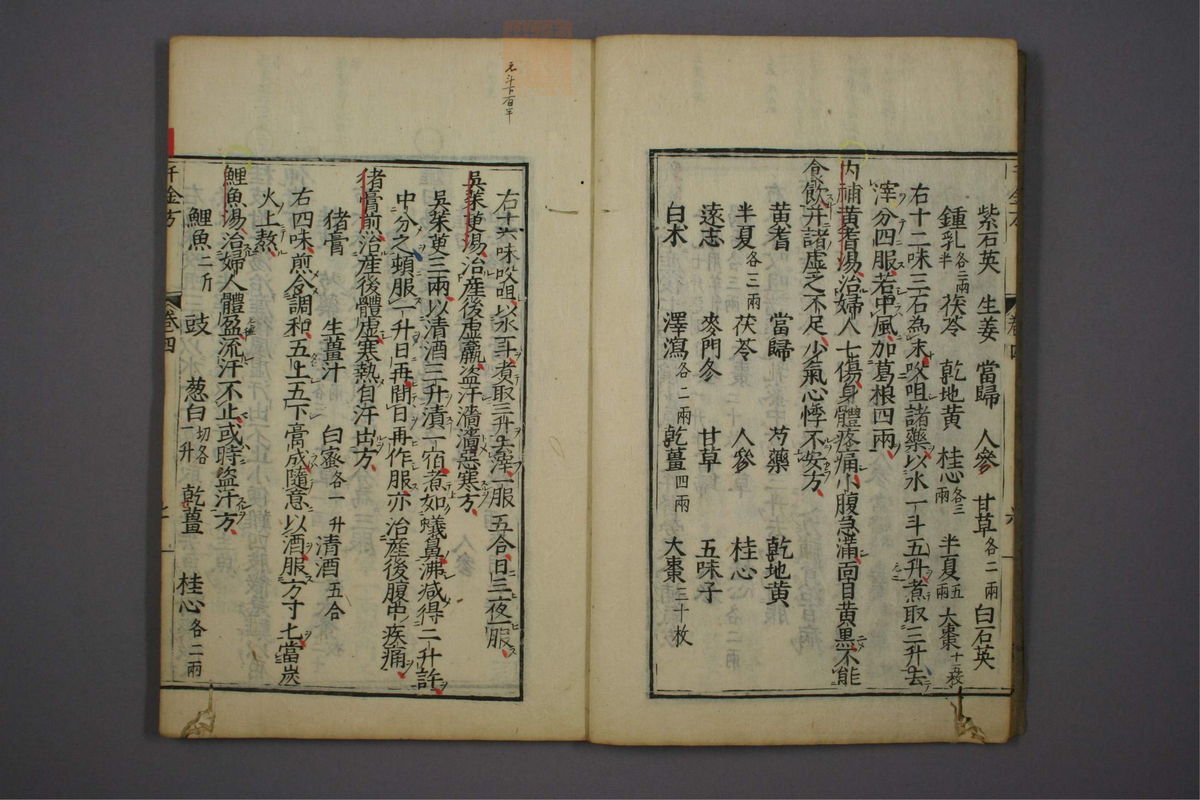 紫石英 生姜 當歸 人參 甘草各二兩 白石英
鍾乳各二兩半 茯苓 乾地黃 桂心各三兩 半夏五兩 大棗十五枚
右十二味三石為末㕮咀諸藥以水一斗五升煮取三升去
滓分四服若中風加葛根四兩
內補黃耆湯治婦人七傷身體疼痛小腹急滿面目黃黑不能
食飲并諸虛乏不足少氣心悸不安方
黃耆 當歸 芍藥 乾地黃
半夏各三兩 茯苓 人參 桂心
遠志 麥門冬 甘草 五味子
白朮 澤瀉各二兩 乾薑四兩 大棗三十枚
右十六味㕮咀以水斗煮取三升去滓一服五合日三夜一服
吳茱萸湯治產後虛羸盜汗濇濇惡寒方
吳茱萸三兩以清酒三升漬一宿煮如蟻鼻沸减得二升許
中分之頓服一升日再間日再作服亦治產後腹中疾痛
猪膏煎治產後體虛寒熱自汗出方
猪膏 生薑汁 白蜜各一升 清酒五合
右四味煎令調和五上五下膏成隨意以酒服方寸匕當炭
火上熬
鯉魚湯治婦人體盈流汗不止或時盜汗方
鯉魚二斤 豉 葱白切各一升 乾薑 桂心各二兩
千金方 卷四